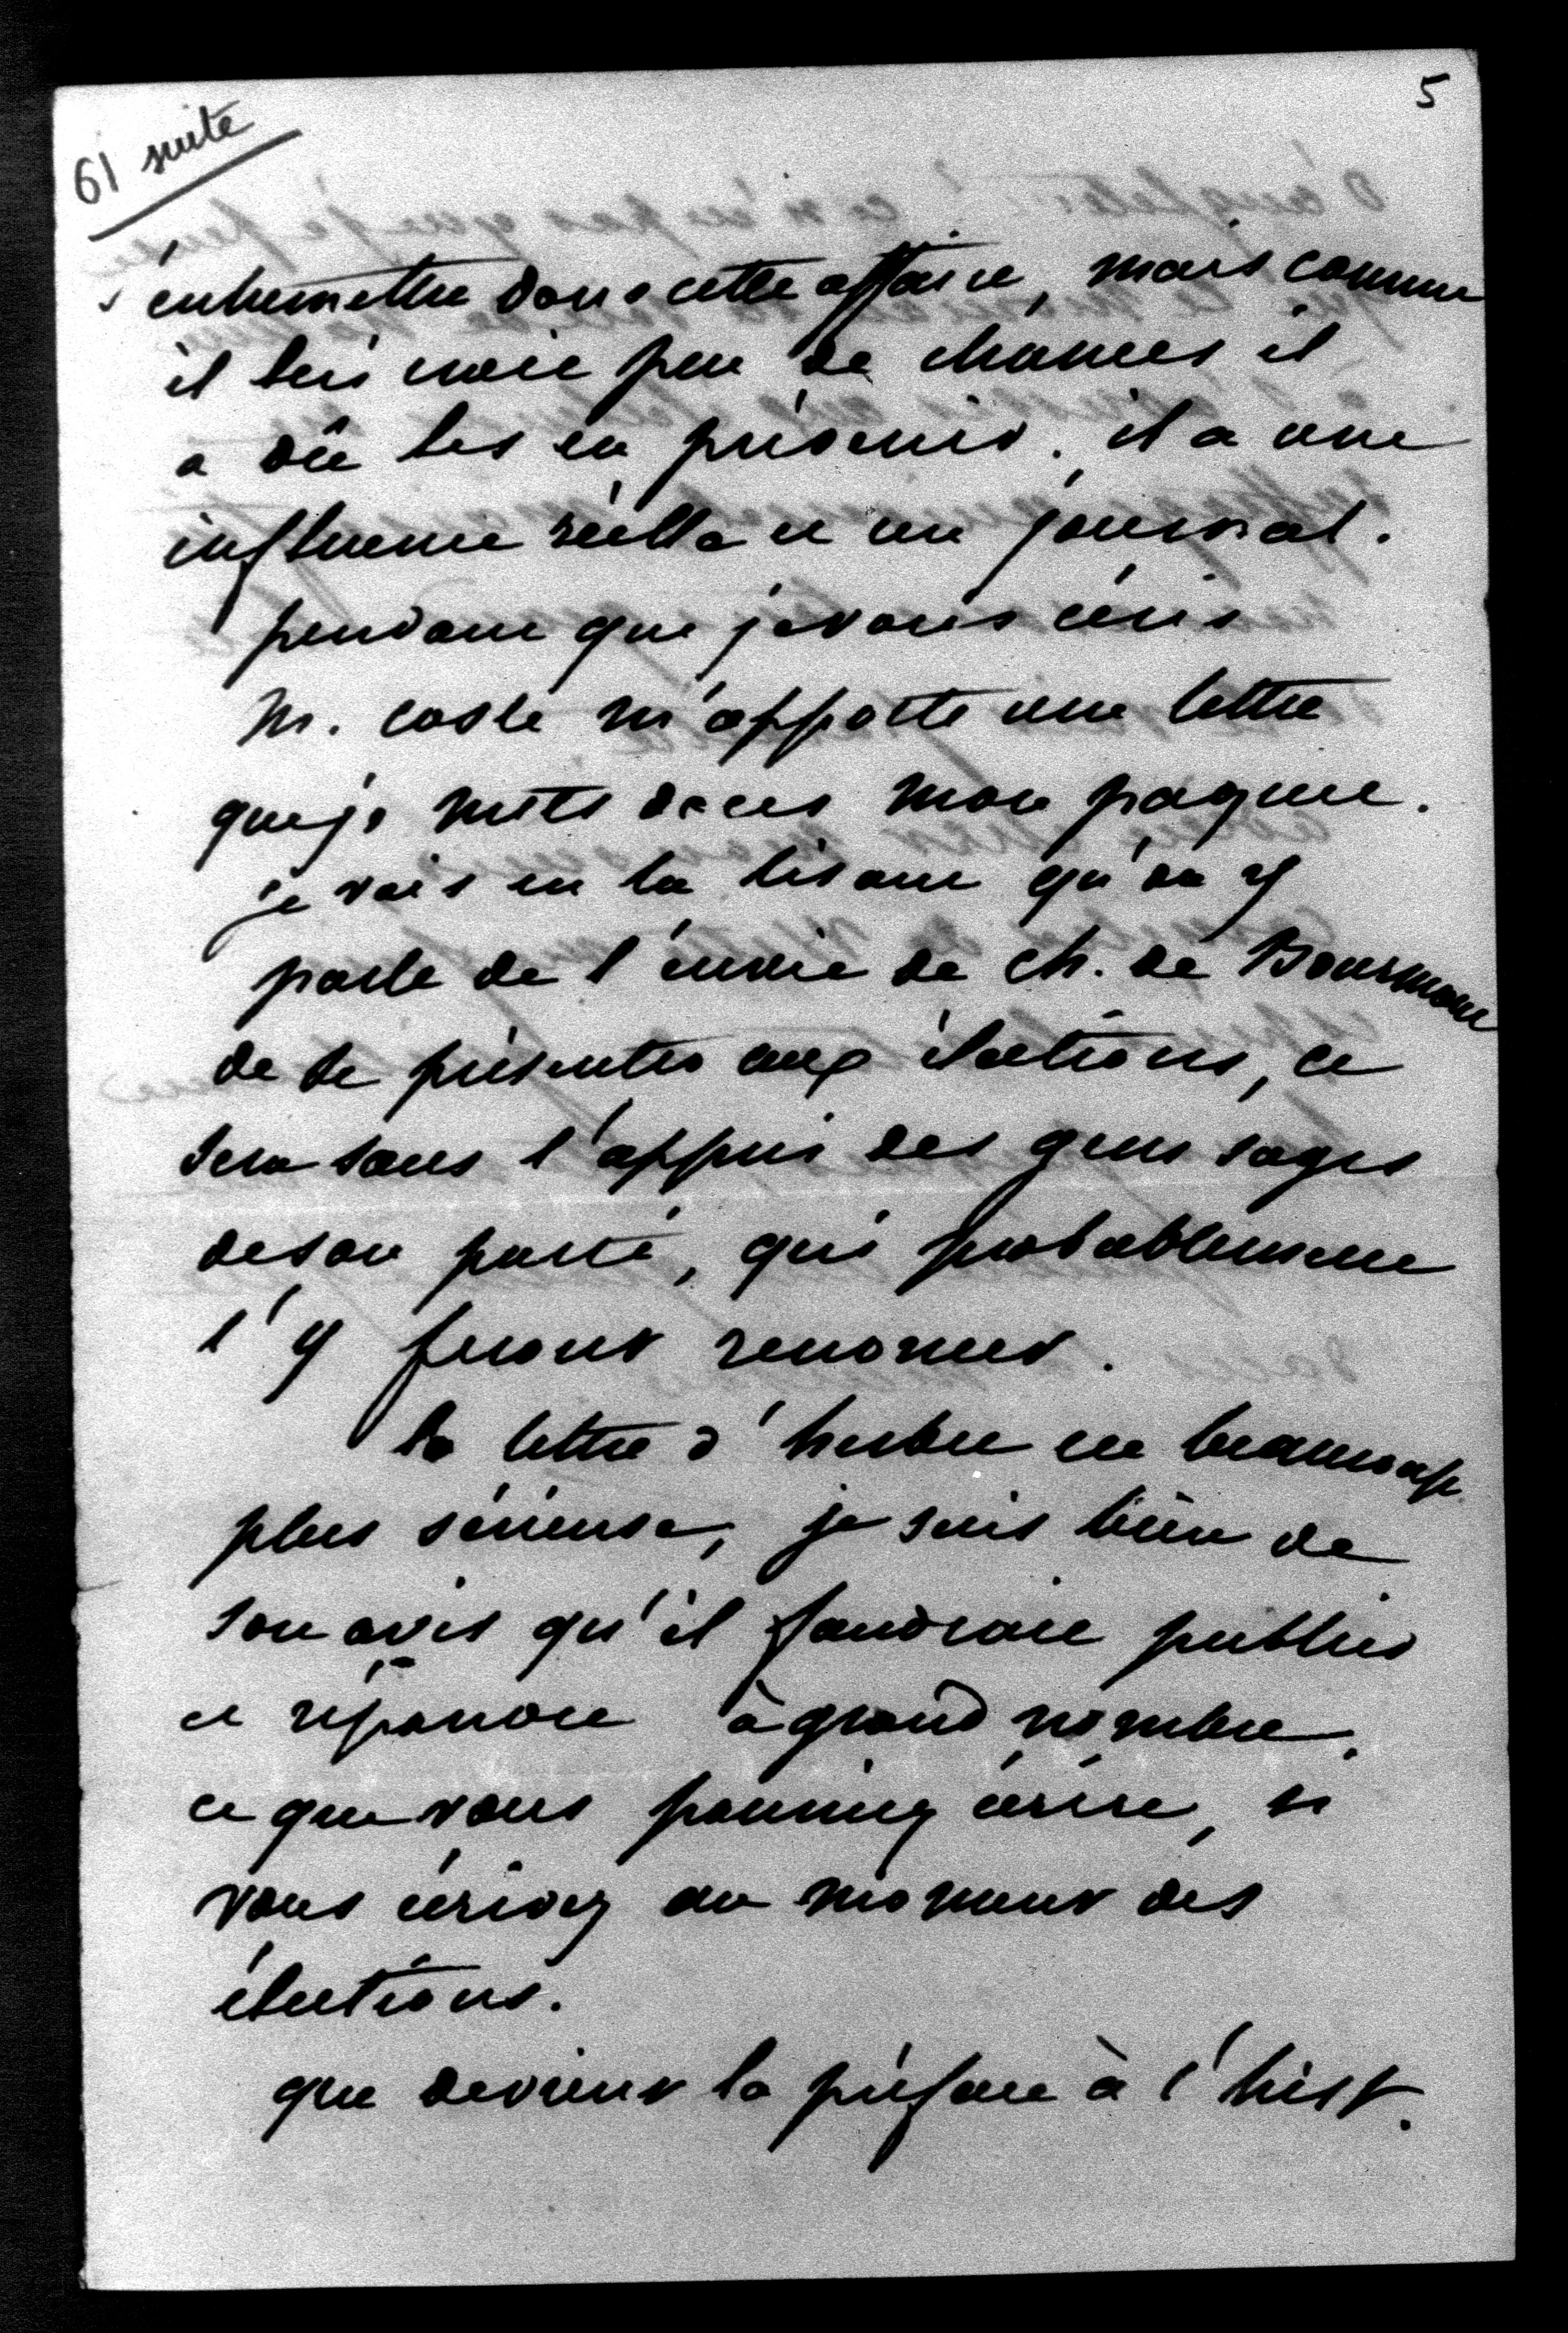 5
61 suite
s'entremettre dans cette affaire, mais comme
il lui croit peu de chances il
a dû les en prévenir. il a une
influence réelle et un journal.
pendant que je vous écris
M. coste m'apporte une lettre
que je mets dans mon paquet.
je vois en la lisant qu'on y
parle de l'envie de ch. de Bourmont
de se présenter aux élections, ce
sera sans l'appui des gens sages
de son parti, qui probablement
l'y feront renoncer.
la lettre d'herbet est beaucoup
plus sérieuse, je suis bien de
son avis qu'il faudrait publier
et répandre à grand nombre,
ce que vous pourriez écrire, si
vous écrivez au moment des
élections.
que devient la préface à l'hist.